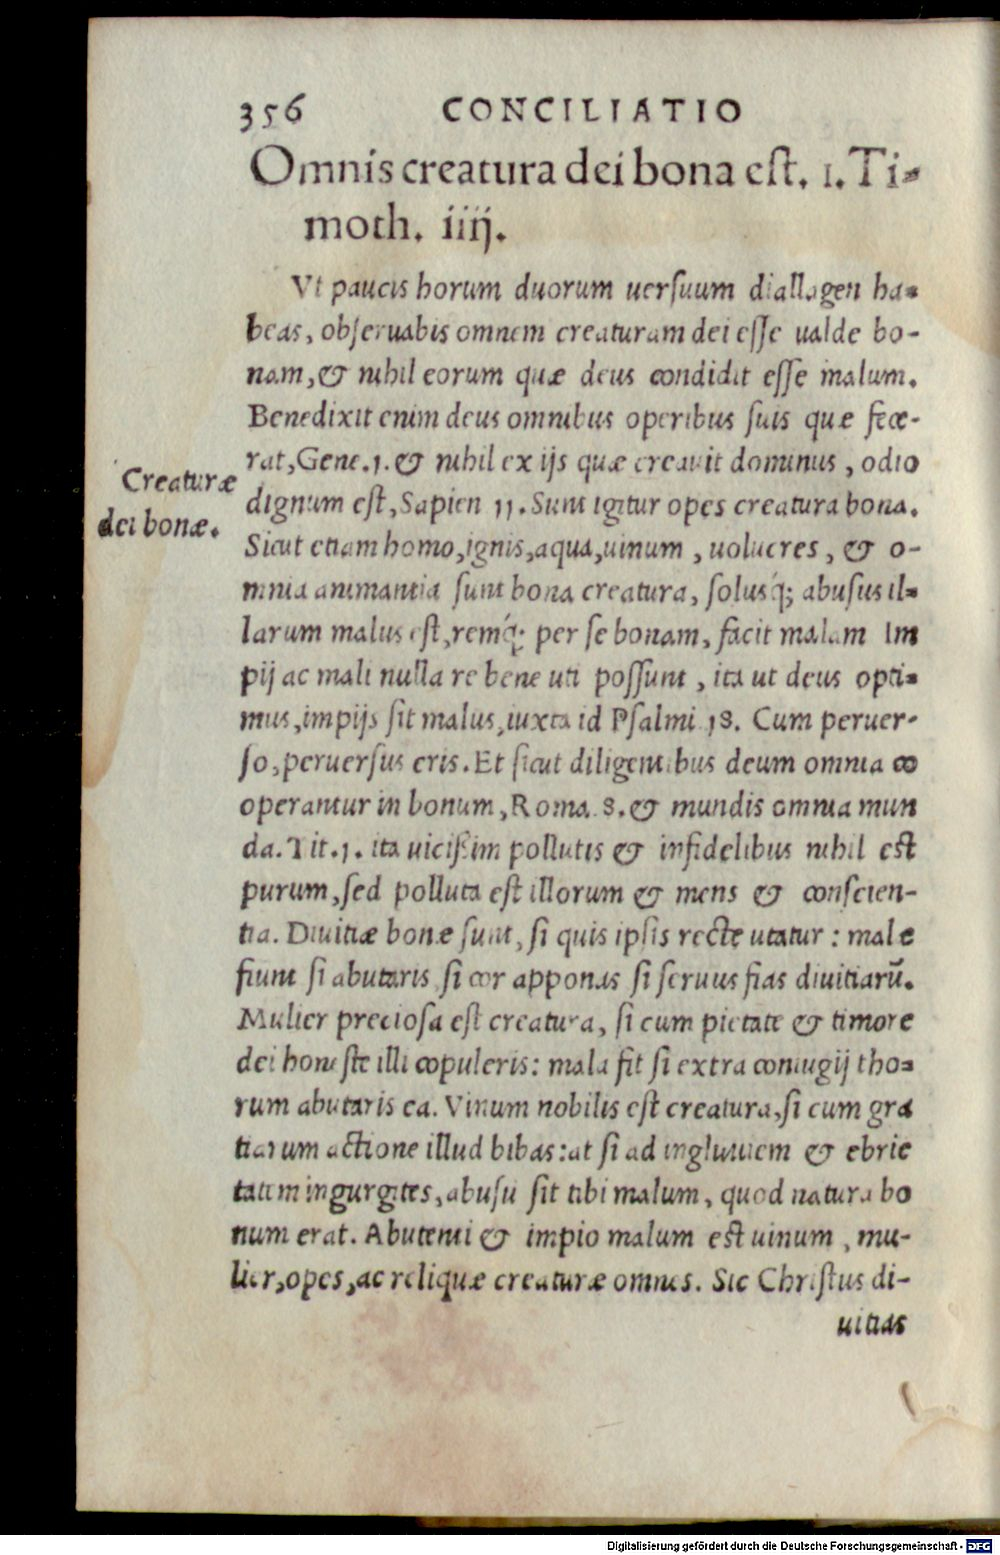 356 CONCILIATIO
Omnis creatura dei bona est. 1. Ti-
moth. iiij.
Vt paucis horum duorum uersuum diallagen ha-
beas, obseruabis omnem creaturam dei esse ualde bo-
nam, & nihil eorum quæ deus condidit esse malum.
Benedixit enim deus omnibus operibus suis quæ fece-
rat, Gene. 1. & nihil ex ijs quæ creauit dominus, odio
Creaturæ
dei bonæ.
dignum est, Sapien 11. Sunt igitur opes creatura bona.
Sicut etiam homo, ignis, aqua, uinum, uolucres, & o-
mnia animantia sunt bona creatura, solusq́; abusus il-
larum malus est, remq́; per se bonam, facit malam Im
pij ac mali nulla re bene uti possunt, ita ut deus opti-
mus, impijs sit malus, iuxta id Psalmi 18. Cum peruer-
so, peruersus eris. Et sicut diligentibus deum omnia co
operantur in bonum, Roma. 8. & mundis omnia mun
da. Tit. 1. ita uicissim pollutis & infidelibus nihil est
purum, sed polluta est illorum & mens & conscien-
tia. Diuitiæ bonæ sunt, si quis ipsis recte utatur: malæ
fiunt si abutaris si cor apponas si seruus fias diuitiarū.
Mulier preciosa est creatura, si cum pietate & timore
dei honeste illi copuleris: mala fit si extra coniugij tho-
rum abutaris ea. Vinum nobilis est creatura, si cum gra
tiarum actione illud bibas: at si ad ingluuiem & ebrie
tatem ingurgites, abusu sit tibi malum, quod natura bo
num erat. Abutenti & impio malum est uinum, mu-
lier, opes, ac reliquæ creaturæ omnes. Sic Christus di-
uitias
Digitalisierung gefördert durch die Deutsche Forschungsgemeinschaft - DFG